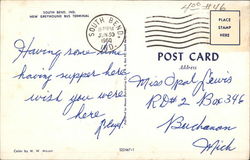 SOUTH BEND, IND.
NEW GREYHOUND BUS TERMINAL
SOUTH BEND,
JUN 30
1960
IND.
400 #46
PLACE
STAMP
HERE
POST CARD
Address
Having some
having supper here
wish you were
here
Miss Opal Lewis
RD#2 Box 346
Buchanan
Mich
Color by